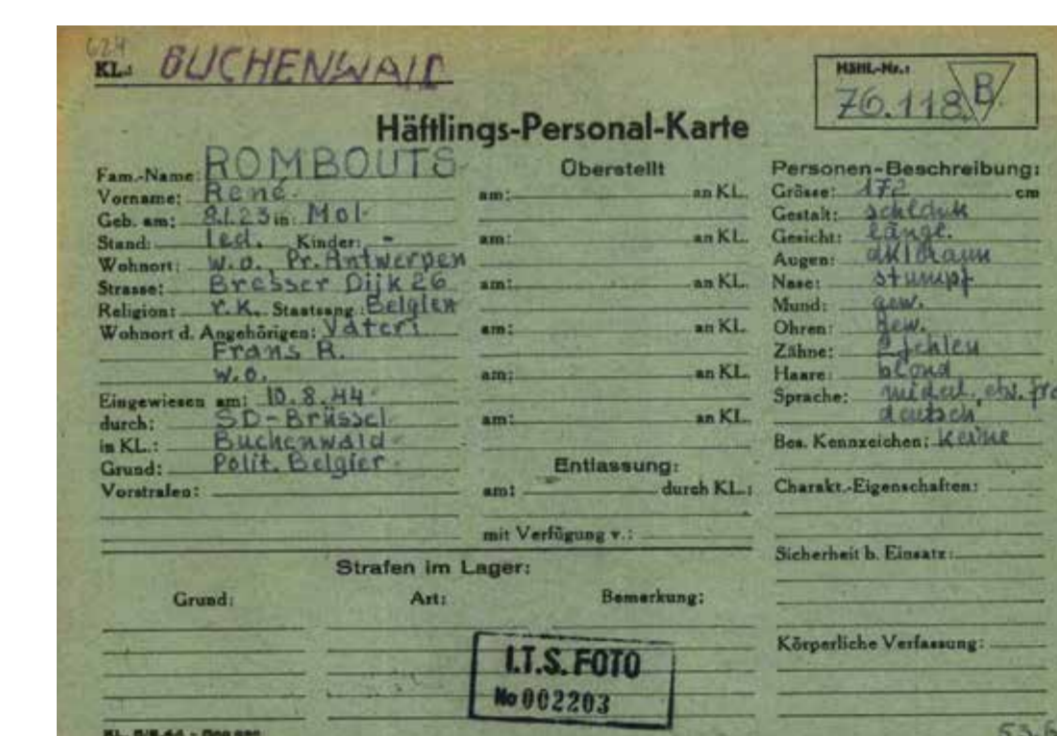 624
KL.: BUCHENWALD
Häftl.-Nr.:
76.118 B
Häftlings-Personal-Karte
Fam.-Name: ROMBOUTS
Vorname: René
Geb. am: 8.1.23 in: Mol
Stand: led. Kinder: -
Wohnort: w.o., Pr. Antwerpen
Strasse: Bresser Dijk 26
Religion: r.K. Staatsang.: Belgien
Wohnort d. Angehörigen: Vater:
Frans R.
w.o.
Eingewiesen am: 10.8.44
durch: SD-Brüssel
in KL.: Buchenwald
Grund: Polit. Belgier
Vorstrafen:
Überstellt
am: an KL.
am: an KL.
am: an KL.
am: an KL.
am: an KL.
am: an KL.
Entlassung:
am: durch KL.:
mit Verfügung v.:
Personen-Beschreibung:
Grösse: 172 cm
Gestalt: schlank
Gesicht: längl.
Augen: dklbraun
Nase: stumpf
Mund: gew.
Ohren: gew.
Zähne: 2 fehlen
Haare: blond
Sprache: etw.
deutsch
Bes. Kennzeichen: keine
Charakt.-Eigenschaften:
Sicherheit b. Einsatz:
Körperliche Verfassung:
Strafen im Lager:
Grund: Art: Bemerkung:
I.T.S. FOTO
No 002203